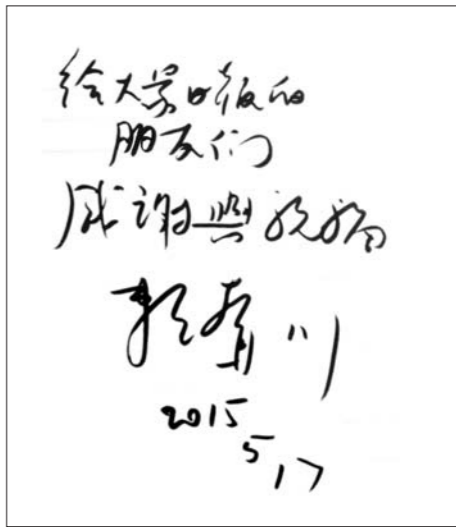 给大学日报的
朋友们
感谢與祝福
赖声川
2015
5,17